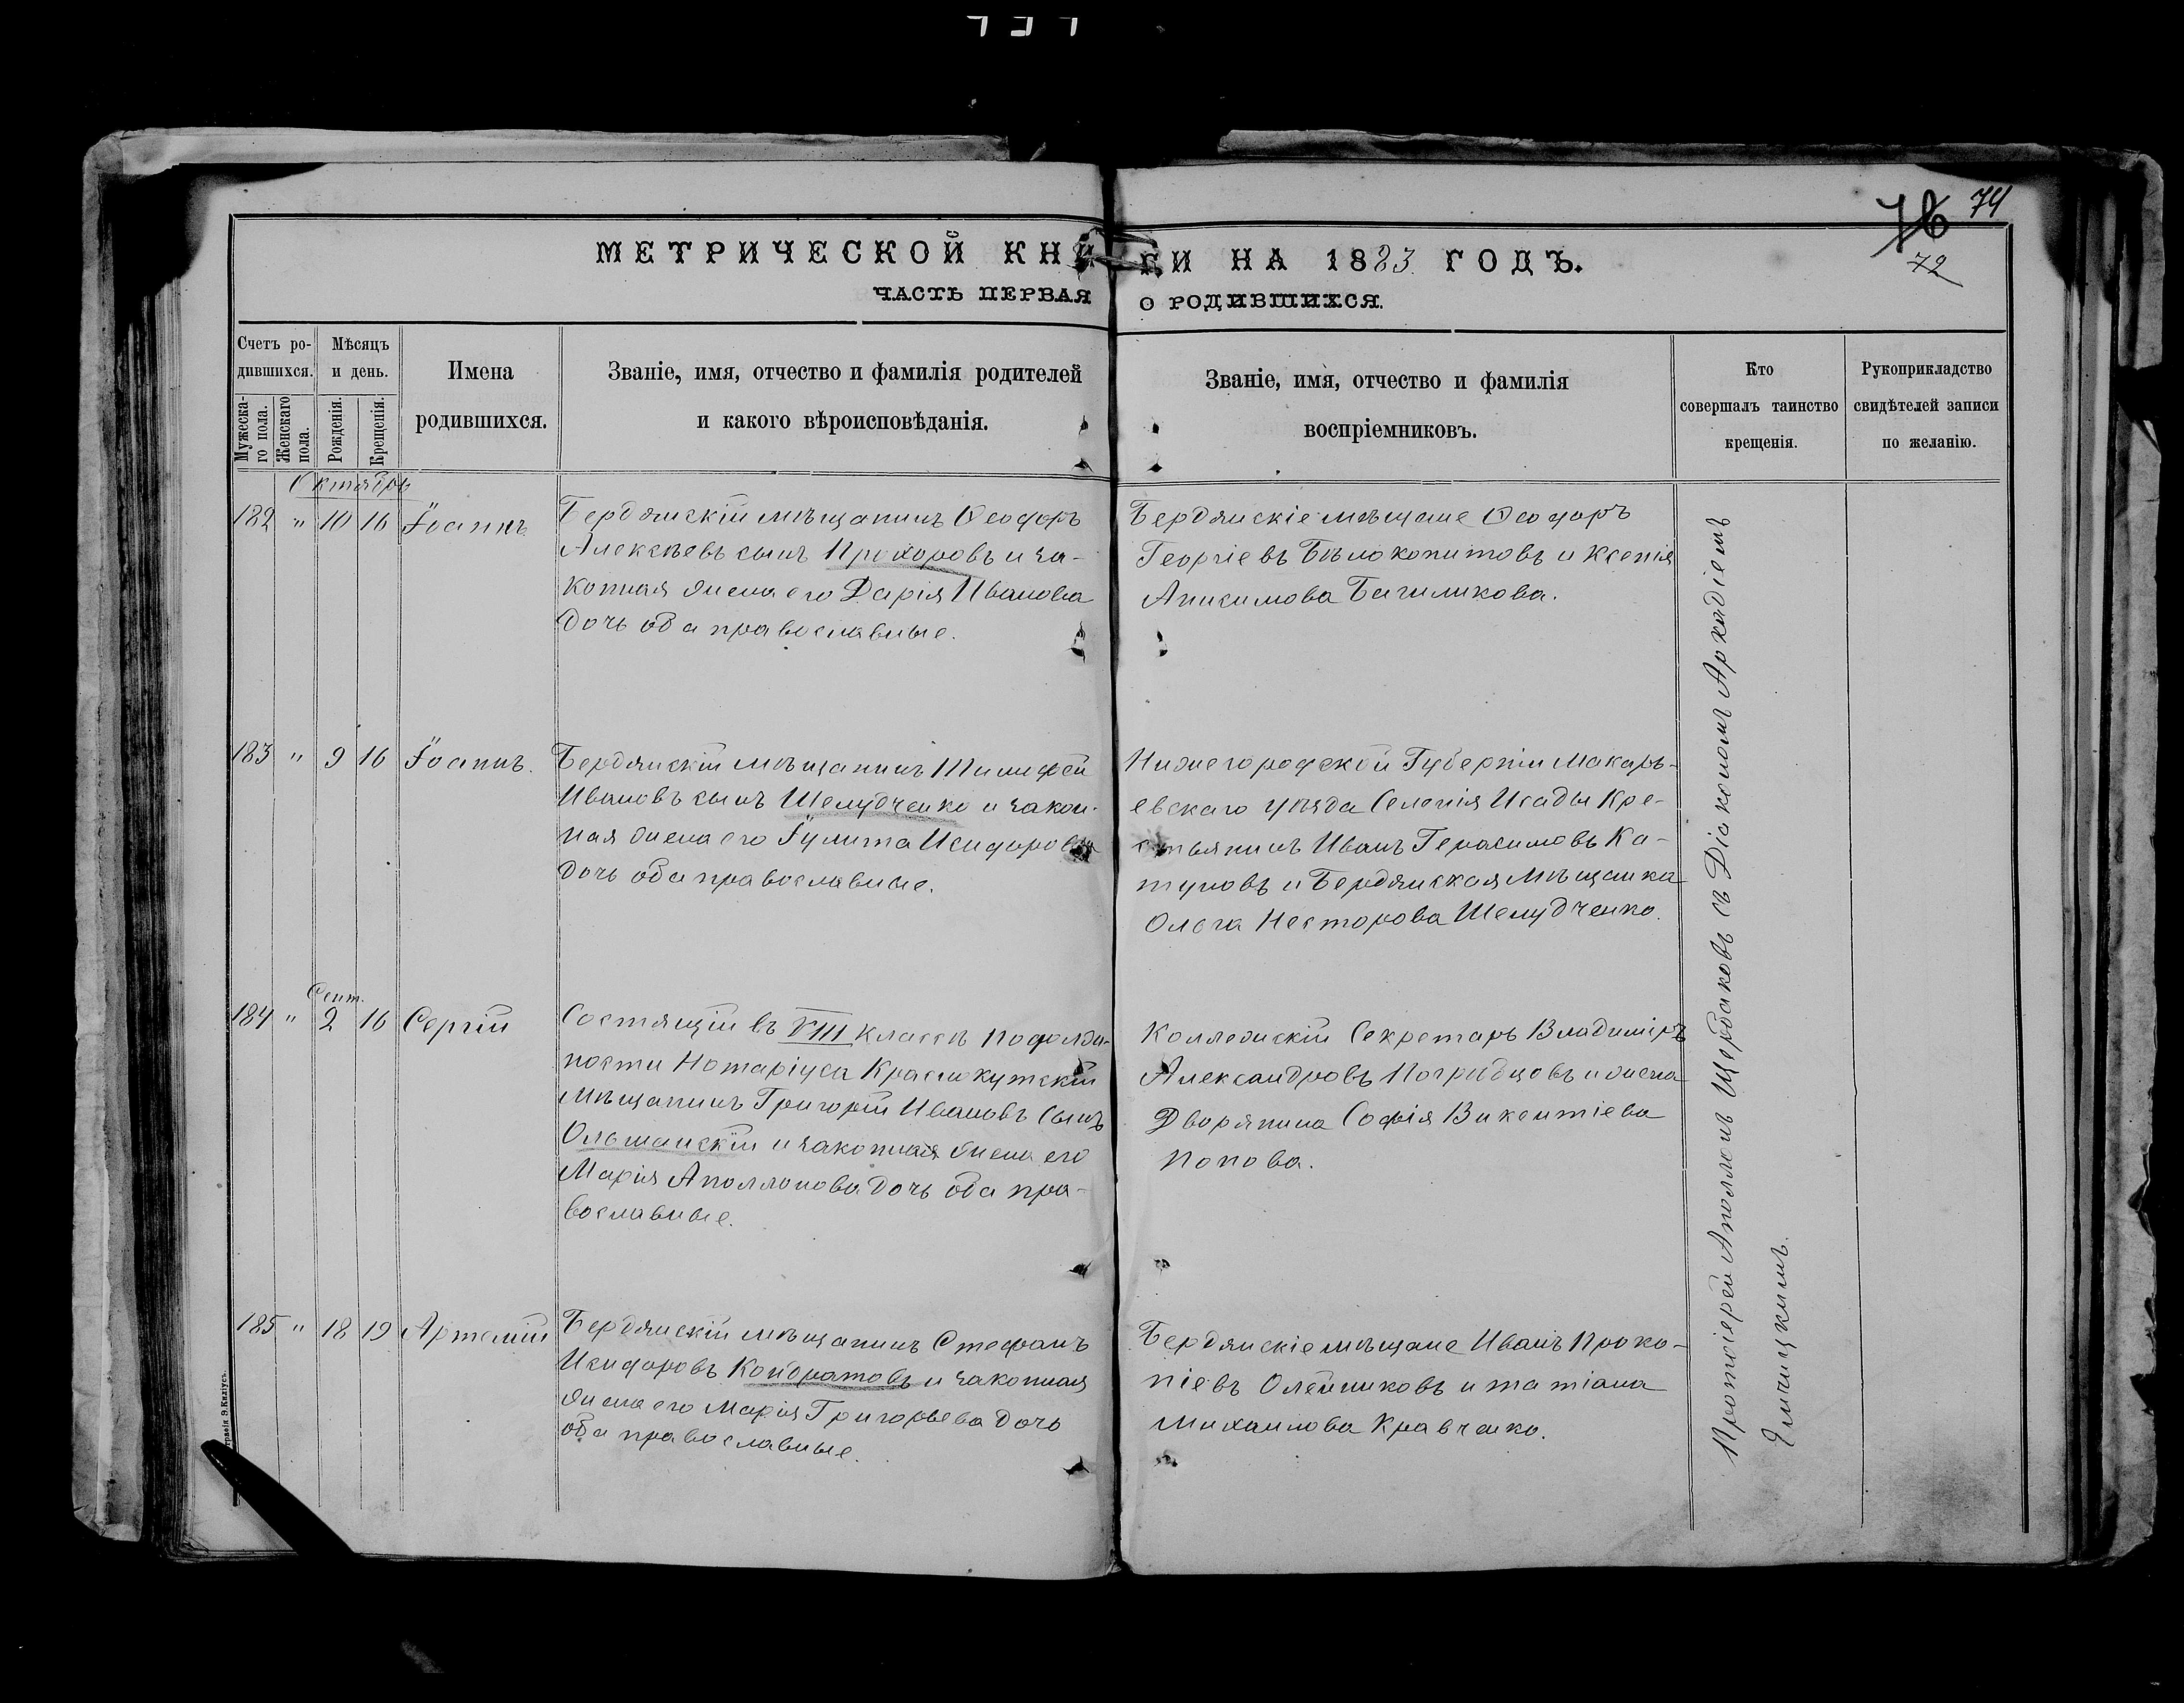 74
76
72
МЕТРИЧЕСКОЙ КНИГИ НА 1883 ГОДЪ.
ЧАСТЬ ПЕРВАЯ О РОДИВШИХСЯ.
Счетъ ро-
дившихся.
Мужеска-
го пола.
Женскаго
пола.
Мѣсяцъ
и день.
Рожденія.
Крещенія.
Имена
родившихся.
Званіе, имя, отчество и фамилія родителей
и какого вѣроисповѣданія.
Званіе, имя, отчество и фамилія
воспріемниковъ.
Кто
совершалъ таинство
крещенія.
Рукоприкладство
свидѣтелей записи
по желанію.
Октябрь
182 " 10 16 Іоаннъ
Бердянскій мѣщанинъ Ѳеодоръ
Алексѣевъ сынъ Прохоровъ и за-
конная жена его Дарія Иванова
дочь оба православные.
Бердянскіе мѣщане Ѳеодоръ
Георгіевъ Бѣлокопитовъ и Ксенія
Анисимова
183 " 9 16 Іоаннъ.
Бердянскій мѣщанинъ Тимофей
Ивановъ сынъ Шелудченко и закон-
ная жена его Іулита Исидорова
дочь оба православные.
Нижегородской Губерніи Макарь-
евскаго уѣзда Селенія Исады Кре-
стьянинъ Иванъ Герасимовъ Ка-
туновъ и Бердянская мѣщанка
Олга Несторова Шелудченко.
Сент.
184 " 2 16 Сергій
Состящій въ VIII классѣ по должн-
ности Нотаріуса Краснокутскій
мѣщанинъ Григорій Ивановъ Сынъ
Ольшанскій и законная жена его
Марія Аполлонова дочь оба пра-
вославные.
Коллежскій Секретарь Владиміръ
Александровъ Погрибцовъ и жена
Дворянина Софія Викентіева
Попова.
185 " 18 19 Артемій
Бердянскій мѣщанинъ Стефанъ
Исидоровъ Кондратовъ и законная
жена его Марія Григорьева дочь
оба православные.
Бердянскіе мѣщане Иванъ Проко-
піевъ Олейниковъ и татіана
Михаилова Кравченко.
Протоіерей Аполлонъ Щербаковъ съ Діакономъ Аркадіемъ